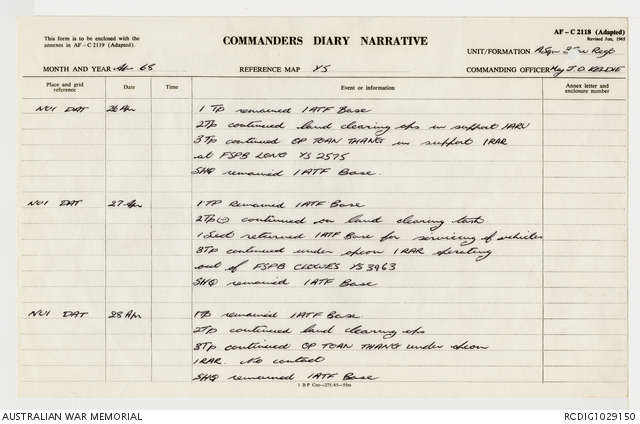 This form is to be enclosed with the
annexes in AF – C 2119 (Adapted).
COMMANDERS DIARY NARRATIVE
AF – C 2118 (Adapted)
Revised Jun, 1965
UNIT/FORMATION A Sqn 3 Regt
MONTH AND YEAR Apr 68
REFERENCE MAP YS
COMMANDING OFFICER Maj J.D. KELDIE
Place and grid reference
Date
Time
Event or information
Annex letter and enclosure number
NUI DAT 26 Apr 1 Tp remained 1ATF Base
2Tp continued land clearing ops in support 1ARU
3Tp continued OP TOAN THANG in support 1RAR
at FSPB LONG YS 2575
SHQ remained 1ATF Base.
NUI DAT 27 Apr 1 TP Remained 1ATF Base
2Tp (-) continued on land clearing task
1 Sect returned 1ATF Base for servicing of vehicles
3Tp continued under opcon 1RAR operating
out of FSPB CLOWES YS 3963
SHQ remained 1ATF Base
NUI DAT 28 Apr 1Tp remained 1ATF Base.
2Tp continued land clearing ops
3Tp continued OP TOAN THANG under opcon
1RAR. No contact
SHQ remained 1ATF Base
AUSTRALIAN WAR MEMORIAL
RCDIG1029150